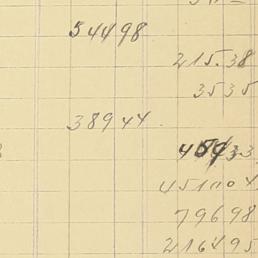 54498
215.38
3535
38944
451104
79698
216495